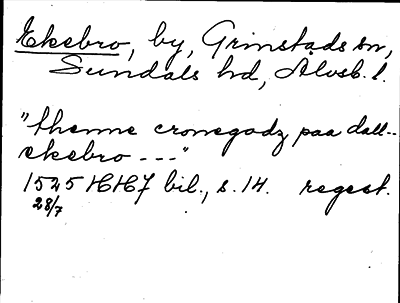 Ekebro, by, Grinstads sn,
Sundals hd, Älvsb. l.
"thenne cronegodz paa dall--
ekebro ---"
1525 HH7 bil., s. 14. regest.
28/7